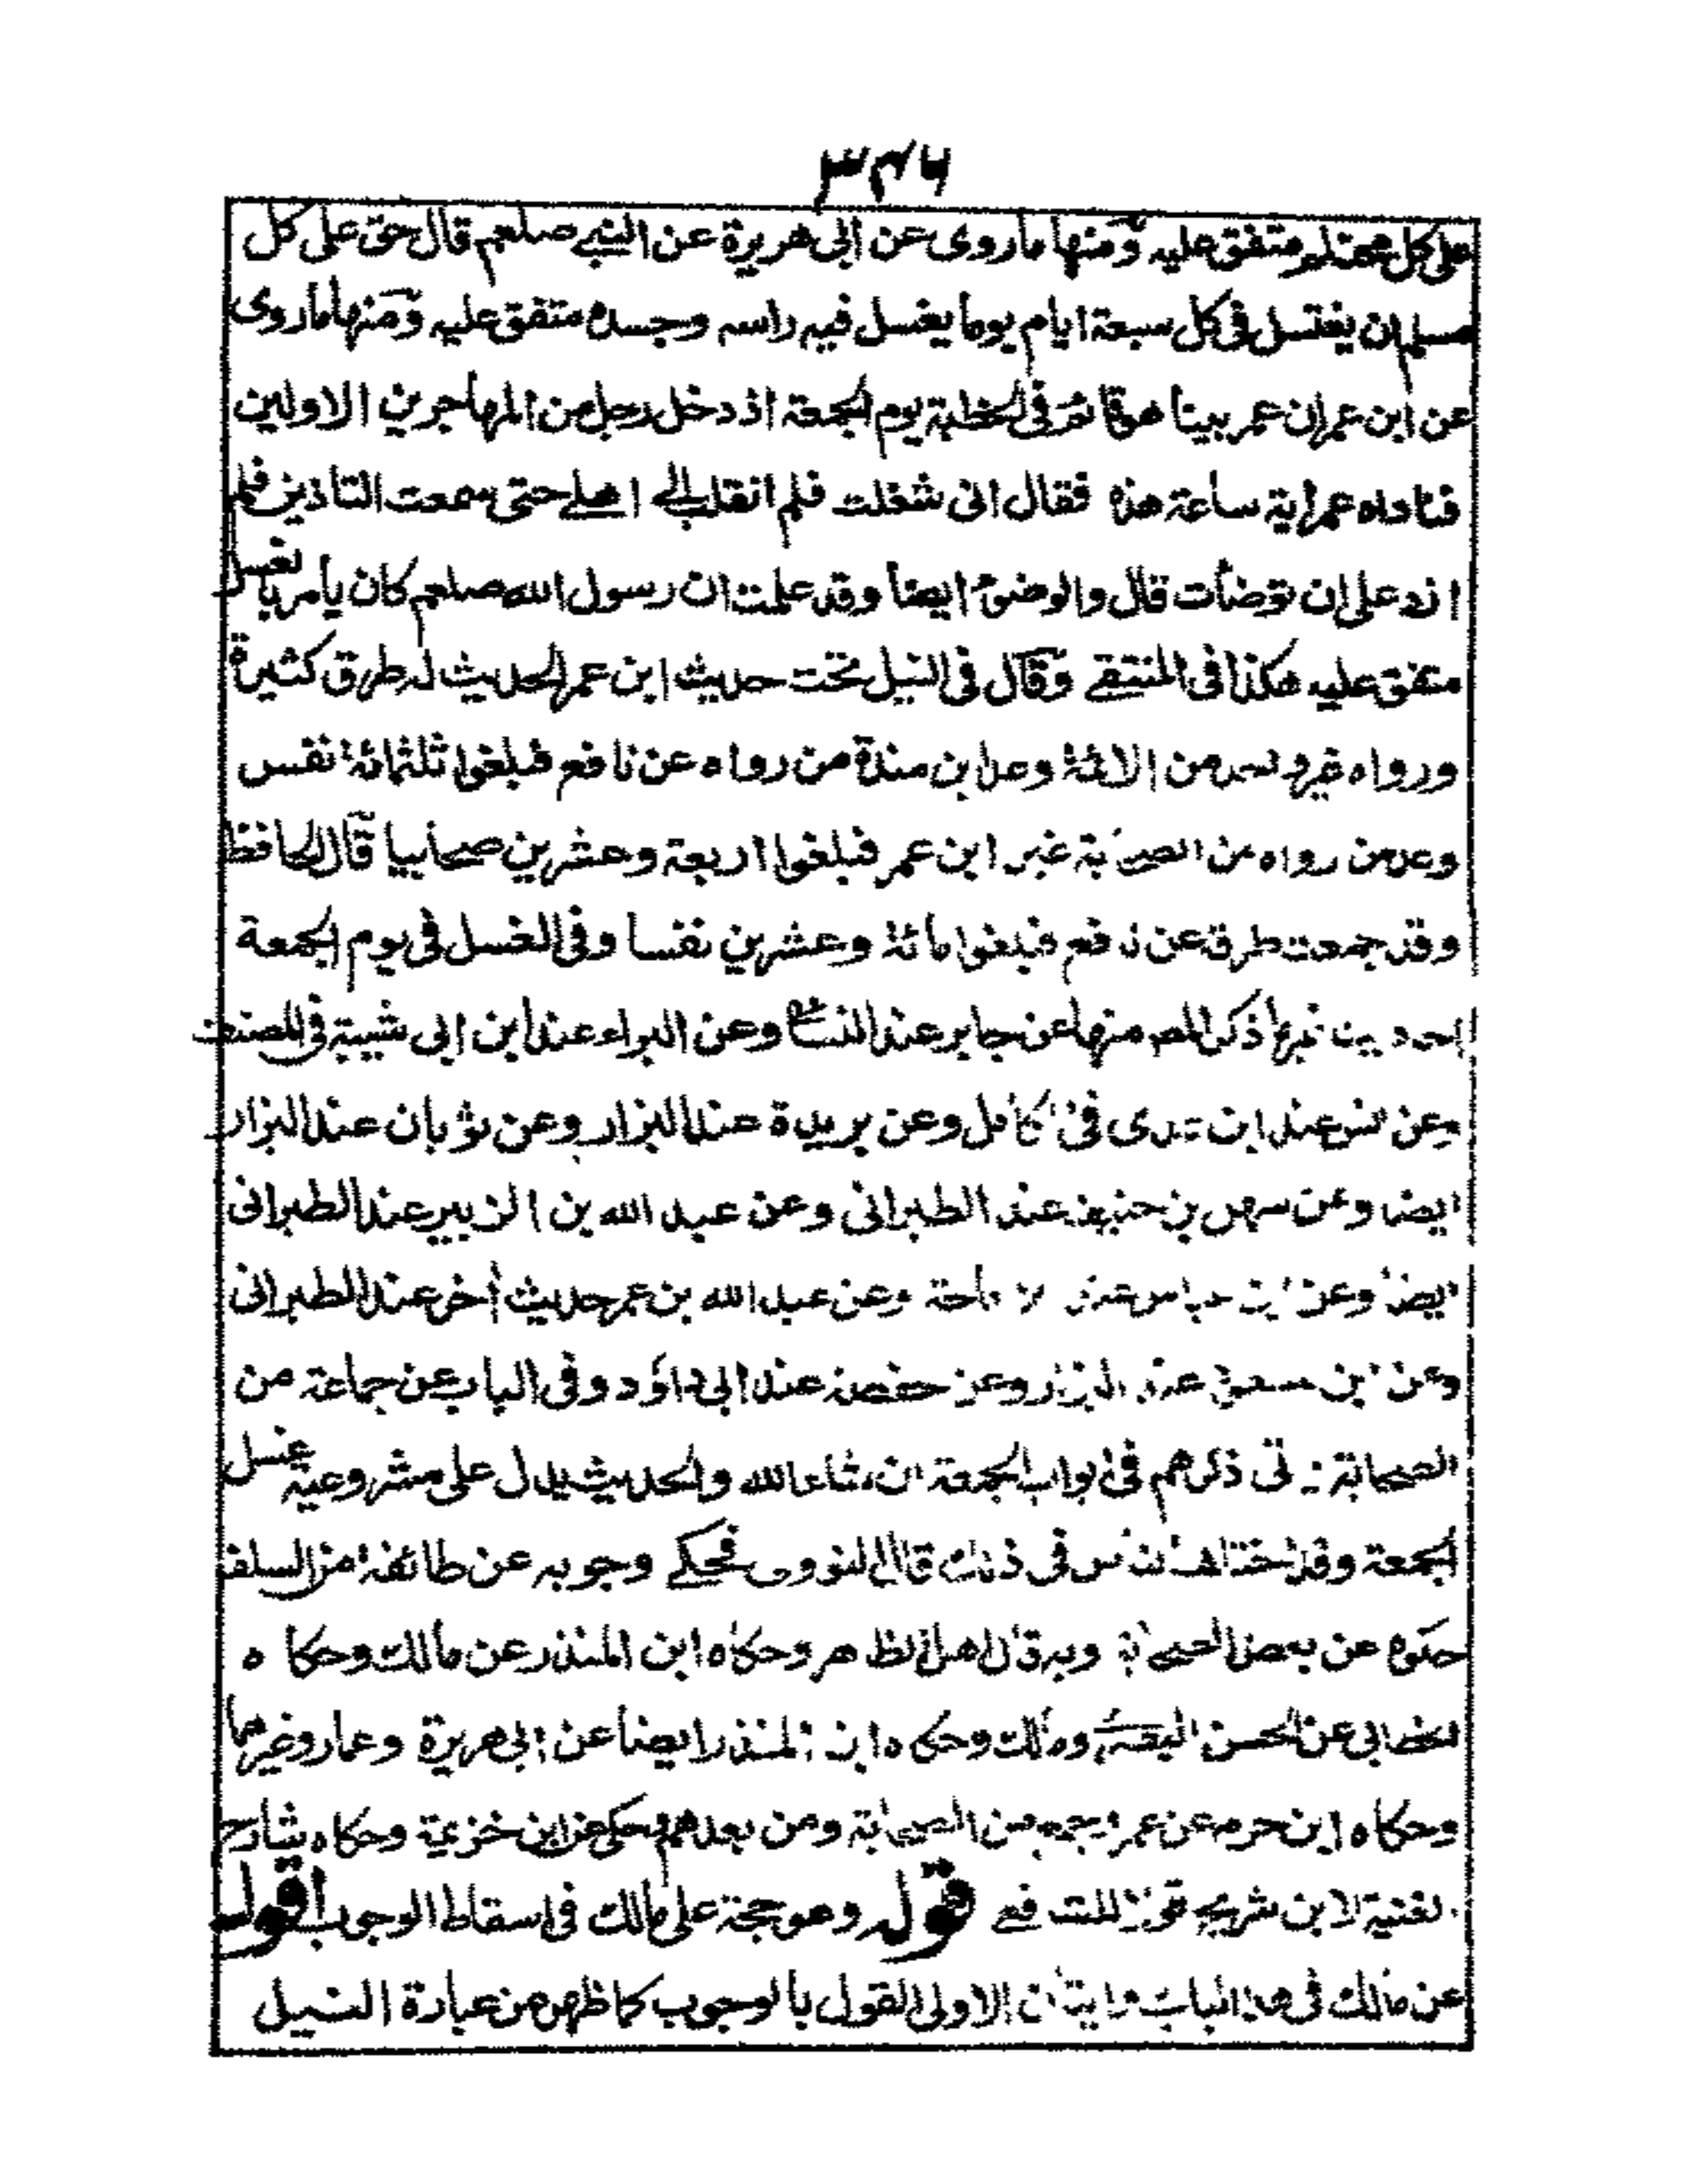 ٣٣٦
على كل محتلم متفق عليه ومنها ما روى عن ابى هريرة عن النبى صلعم قال حق على كل
مسلم ان يغتسل فى كل سبعة ايام يوما يغسل فيه راسه وجسده متفق عليه ومنها ما روى
عن ابن عمر ان عمر بينا هو قائم فى الخطبة يوم الجمعة اذ دخل رجل من المهاجرين الاولين
فناداه عمر اية ساعة هذه فقال انى شغلت فلم انقلب الى اهلى حتى سمعت التاذين فلم
ازد على ان توضأت قال والوضوء ايضا وقد علمت ان رسول الله صلعم كان يأمر بالغسل
متفق عليه هكذا فى المنتقى وقال فى النيل تحت حديث ابن عمر الحديث له طرق كثيرة
ورواه غير واحد من الائمة وعد ابن مندة من رواه عن نافع فبلغوا ثلثمائة نفس
وعد من رواه من الصحابة غير ابن عمر فبلغوا اربعة وعشرين صحابيا قال الحافظ
وقد جمعت طرقه عن نافع فبلغوا مائة وعشرين نفسا وفى الغسل فى يوم الجمعة
احاديث غير ما ذكر المص منها عن جابر عند النسائى وعن البراء عند ابن ابى شيبة فى المصنف
وعن انس عند ابن عدى فى الكامل وعن بريدة عند البزار وعن ثوبان عند البزار
ايضا وعن سهل بن حنيف عند الطبرانى وعن عبد الله بن الزبير عند الطبرانى
ايضا وعن ابن عباس عند ابن ماجة وعن عبد الله بن عمر حديث أخر عند الطبرانى
وعن ابن مسعود عند البزار وعن حفصة عند ابى داؤد وفى الباب عن جماعة من
الصحابة ياتى ذكرهم فى ابواب الجمعة ان شاء الله والحديث يدل على مشروعية غسل
الجمعة وقد اختلف الناس فى ذلك قال النووى فحكى وجوبه عن طائفة من السلف
حكوه عن بعض الصحابة وبه قال اهل الظاهر وحكاه ابن المنذر عن مالك وحكاه
الخطابى عن الحسن البصرى ومالك وحكاه ابن المنذر ايضا عن ابى هريرة وعمار وغيرهما
وحكاه ابن حزم عن عمر وجمع من الصحابة ومن بعدهم وحكى عن ابن خزيمة وحكاه شارح
الغنية لابن شريح قولا للشافعى قوله وهو حجة على مالك فى اسقاط الوجوب اقول
عن مالك فى هذا الباب روايتان الاولى القول بالوجوب كما ظهر من عبارة النيل